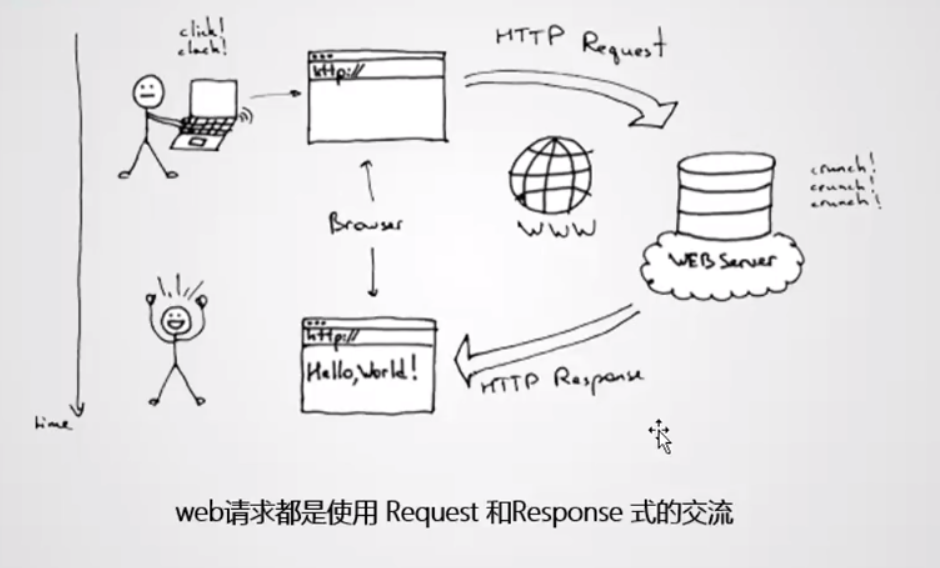 click!
clack!
HTTP Request
http://
crunch!
crunch!
crunch!
WWW
Browser
WEB Server
http://
Hello, World!
HTTP Response
time
web请求都是使用 Request 和Response 式的交流